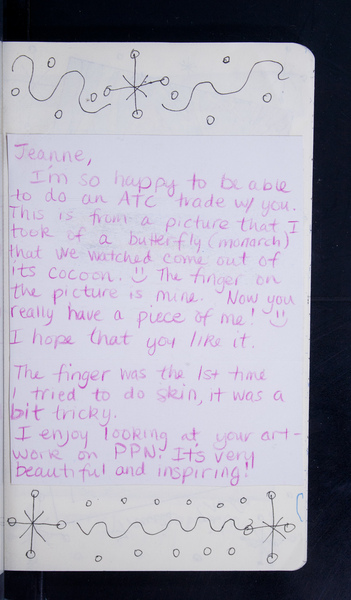 Jeanne,
I'm so happy to be able
to do an ATC trade w/ you.
This is from a picture that I
took of a butterfly (monarch)
that we watched come out of
its cocoon. The finger on
the picture is mine. Now you
really have a piece of me!
I hope that you like it.
The finger was the 1st time
I tried to do skin, it was a
bit tricky.
I enjoy looking at your art-
work on PPN. It's very
beautiful and inspiring!!